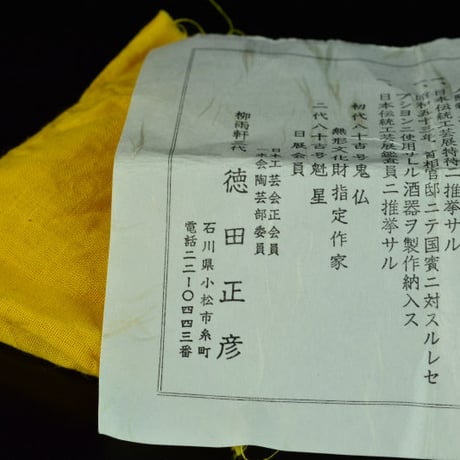 日本伝統工芸展特待ニ推挙サル
一、昭和五十三年、首相官邸ニテ国賓ニ対スルレセ
プションニ使用サレル酒器ヲ製作納入ス
日本伝統工芸展鑑査員ニ推挙サル
初代八十吉号鬼仏
無形文化財指定作家
二代八十吉号魁星
日展会員
日本工芸会正会員
陶芸部委員
柳雨軒代
徳田正彦
石川県小松市糸町
電話二二―〇四四三番